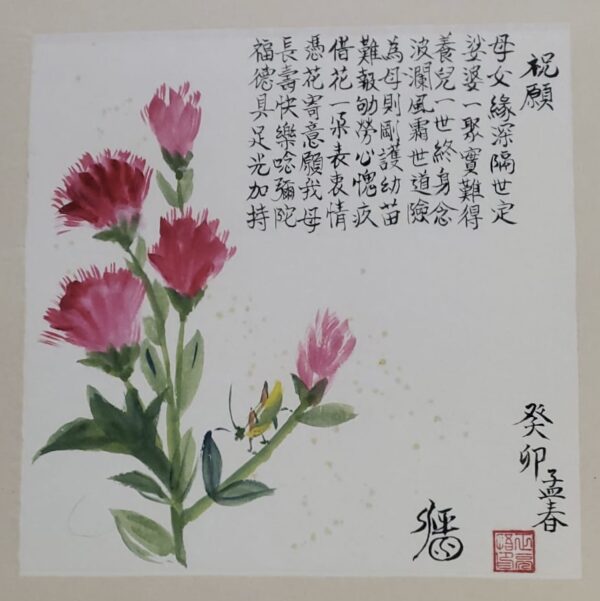 祝願
母女緣深隔世定
娑婆一聚實難得
養兒一世終身念
波瀾風霜世道險
為母則剛護幼苗
難報劬勞心愧疚
借花一朵表衷情
憑花寄意願我母
長壽快樂唸彌陀
福德具足光加持
癸卯孟春